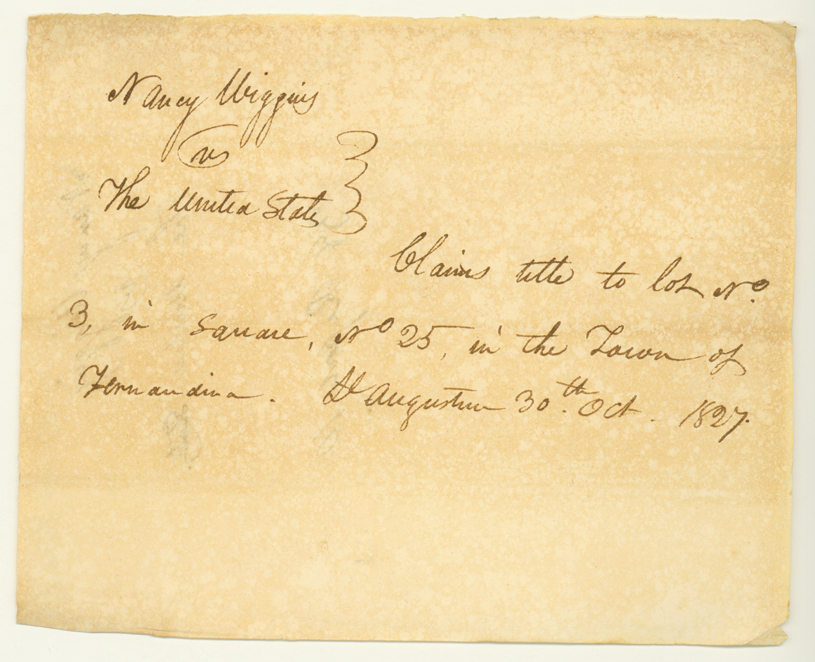 Nancy Wiggins
vs
The United States
Claims title to lot No.
3, in Square, No 25, in the Town of
Fernandina. St Augustine 30th. Oct. 1827.